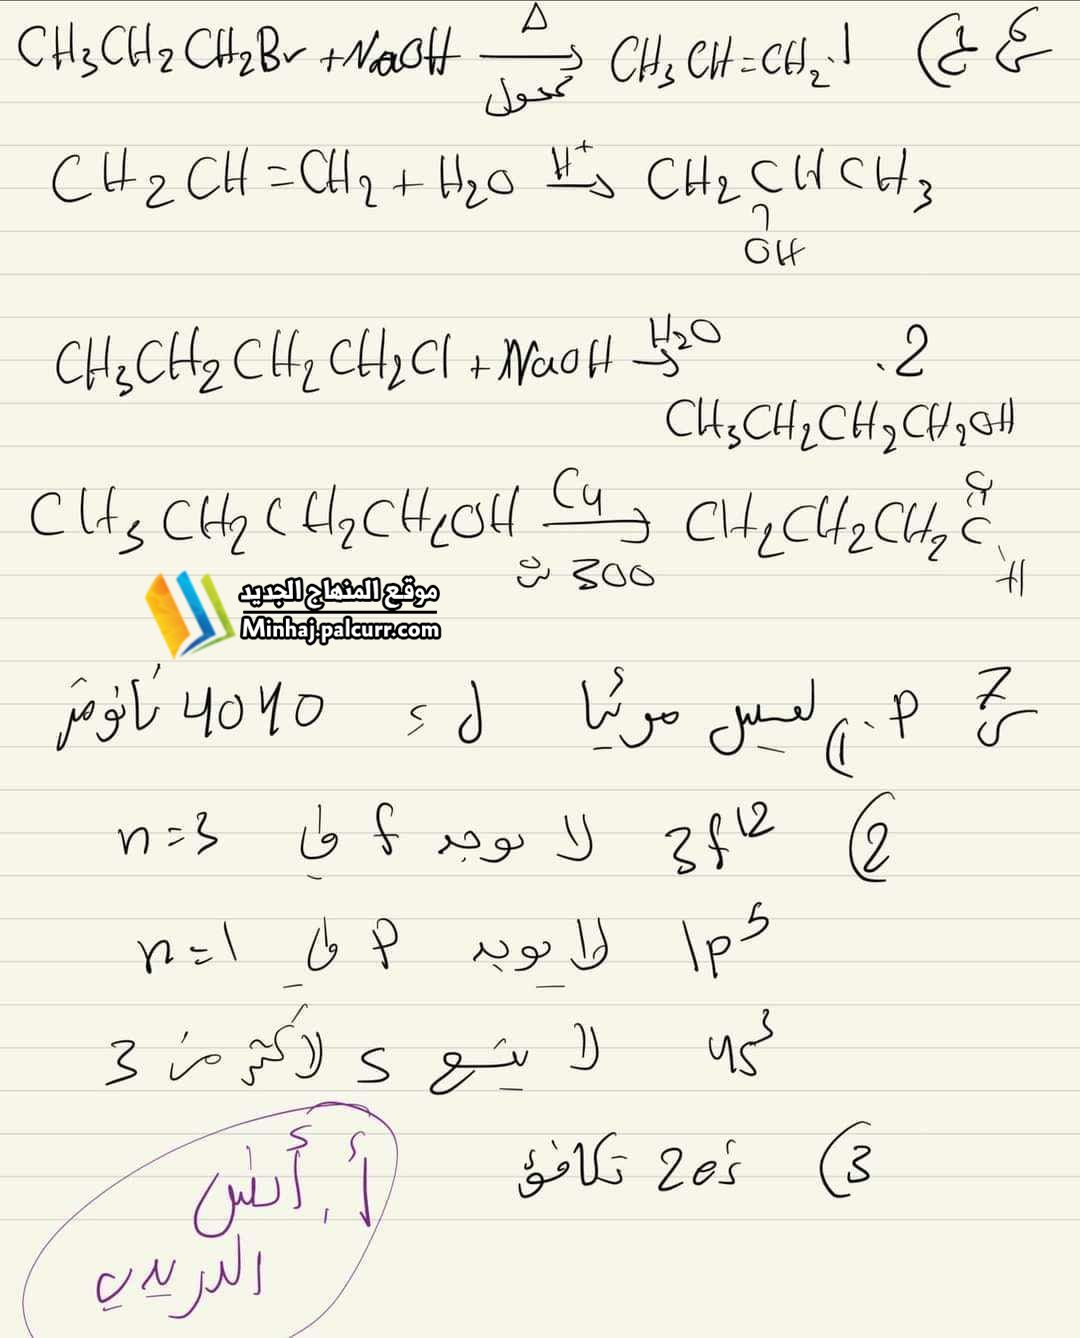 CH3CH2CH2Br + NaOH →Δ كحول CH3CH=CH2 .1 (ج
CH2CH=CH2 + H2O →H+ CH2CHCH3
OH
CH3CH2CH2CH2Cl + NaOH →H2O .2
CH3CH2CH2CH2OH
CH3CH2CH2CH2OH →Cu CH2CH2CH2C
H
300 س
موقع المنهاج الجديد
Minhaj.palcurr.com
س7 P. (1 ليس مرئيا ل 4040 نانومتر
(2 3f12 لا يوجد f في n=3
1p5 لا يوجد P في n=1
4s3 لا يتسع s لأكثر من 3
(3 2e's تكافؤ
أ. أنس